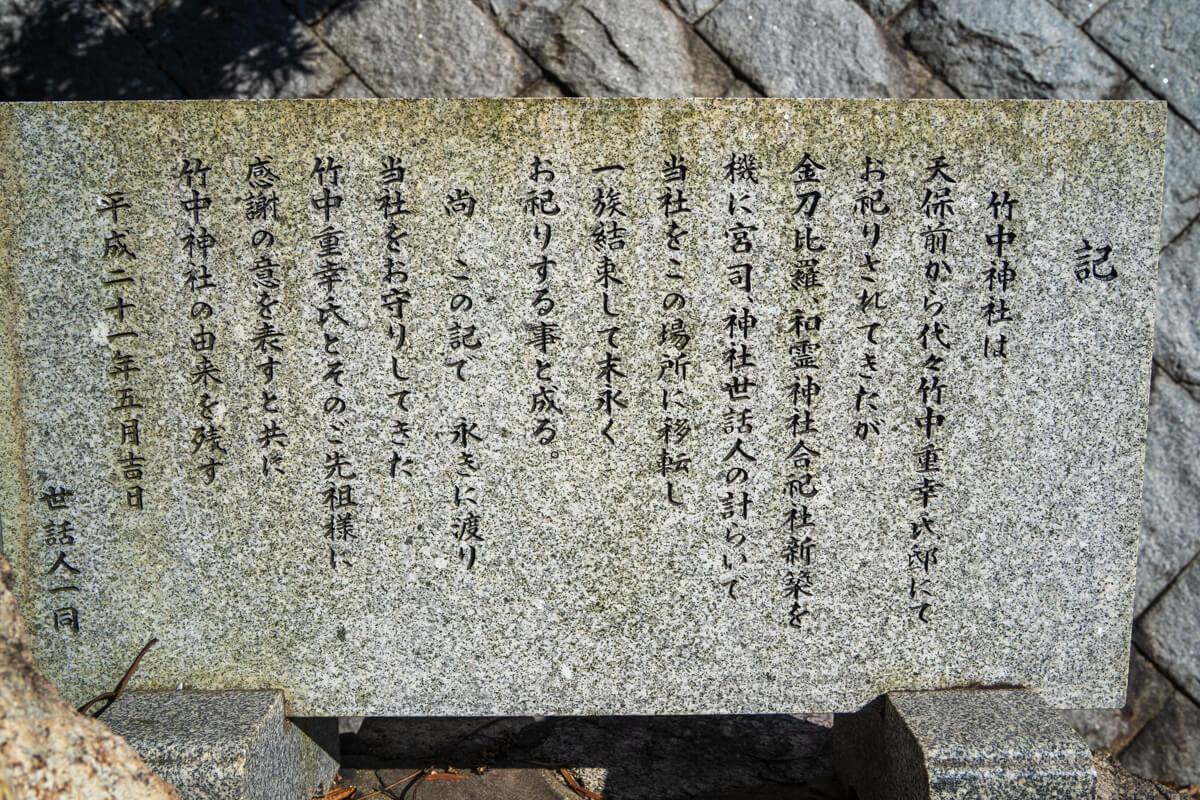 記
竹中神社は
天保前から代々竹中重幸氏邸にて
お祀りされてきたが
金刀比羅、和霊神社合祀社新築を
機に宮司、神社世話人の計らいで
当社をこの場所に移転し
一族結束して末永く
お祀りする事と成る。
尚 この記で 永きに渡り
当社をお守りしてきた
竹中重幸氏とそのご先祖様に
感謝の意を表すと共に
竹中神社の由来を残す
平成二十一年五月吉日
世話人一同